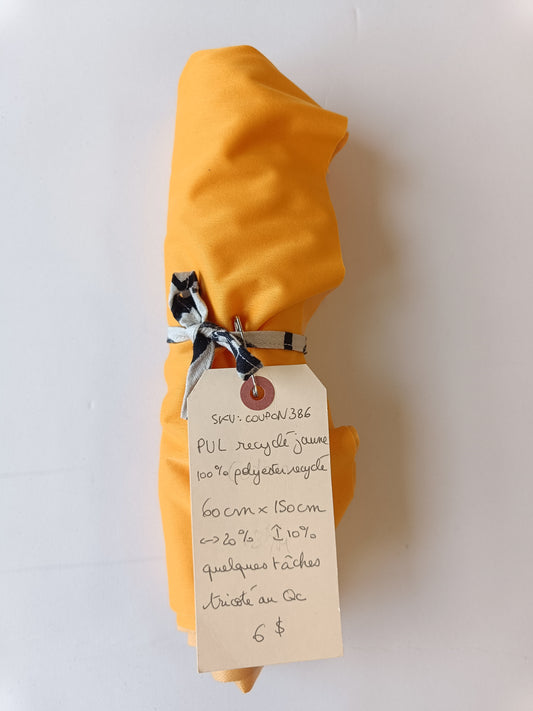 SKU: COUPON386
PUL recyclé jaune
100% polyester recyclé
60cm x 150cm
↔ 20% ↕ 10%
quelques tâches
tricoté au Qc
6 $